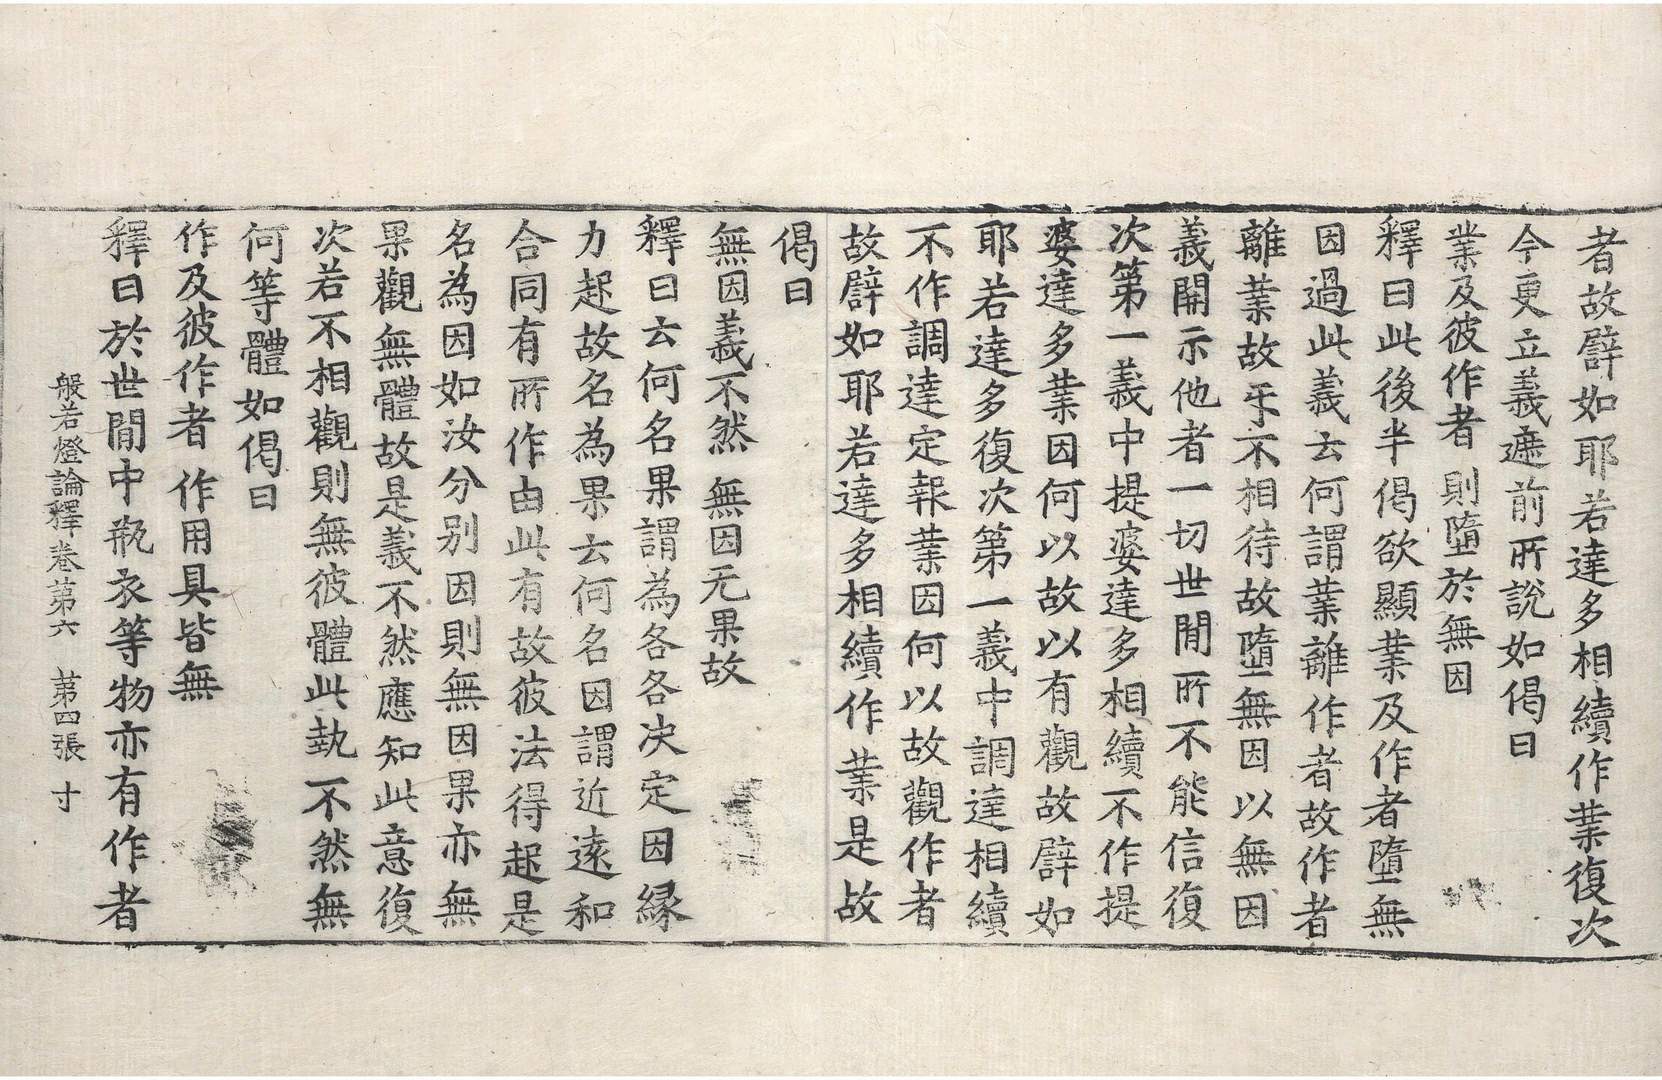 者故譬如耶若達多相續作業復次
今更立義遮前所說如偈曰
業及彼作者 則墮於無因
釋曰此後半偈欲顯業及作者墮無
因過此義云何謂業離作者故作者
離業故乎不相待故墮無因以無因
義開示他者一切世間所不能信復
次第一義中提婆達多相續不作提
婆達多業因何以故以有觀故譬如
耶若達多復次第一義中調達相續
不作調達定報業因何以故觀作者
故譬如耶若達多相續作業是故
偈曰
無因義不然 無因无果故
釋曰云何名果謂為各各決定因緣
力起故名為果云何名因謂近遠和
合同有所作由此有故彼法得起是
名為因如汝分別因則無因果亦無
果觀無體故是義不然應知此意復
次若不相觀則無彼體此執不然無
何等體如偈曰
作及彼作者 作用具皆無
釋曰於世間中瓶衣等物亦有作者
般若燈論釋卷第六 第四張 寸